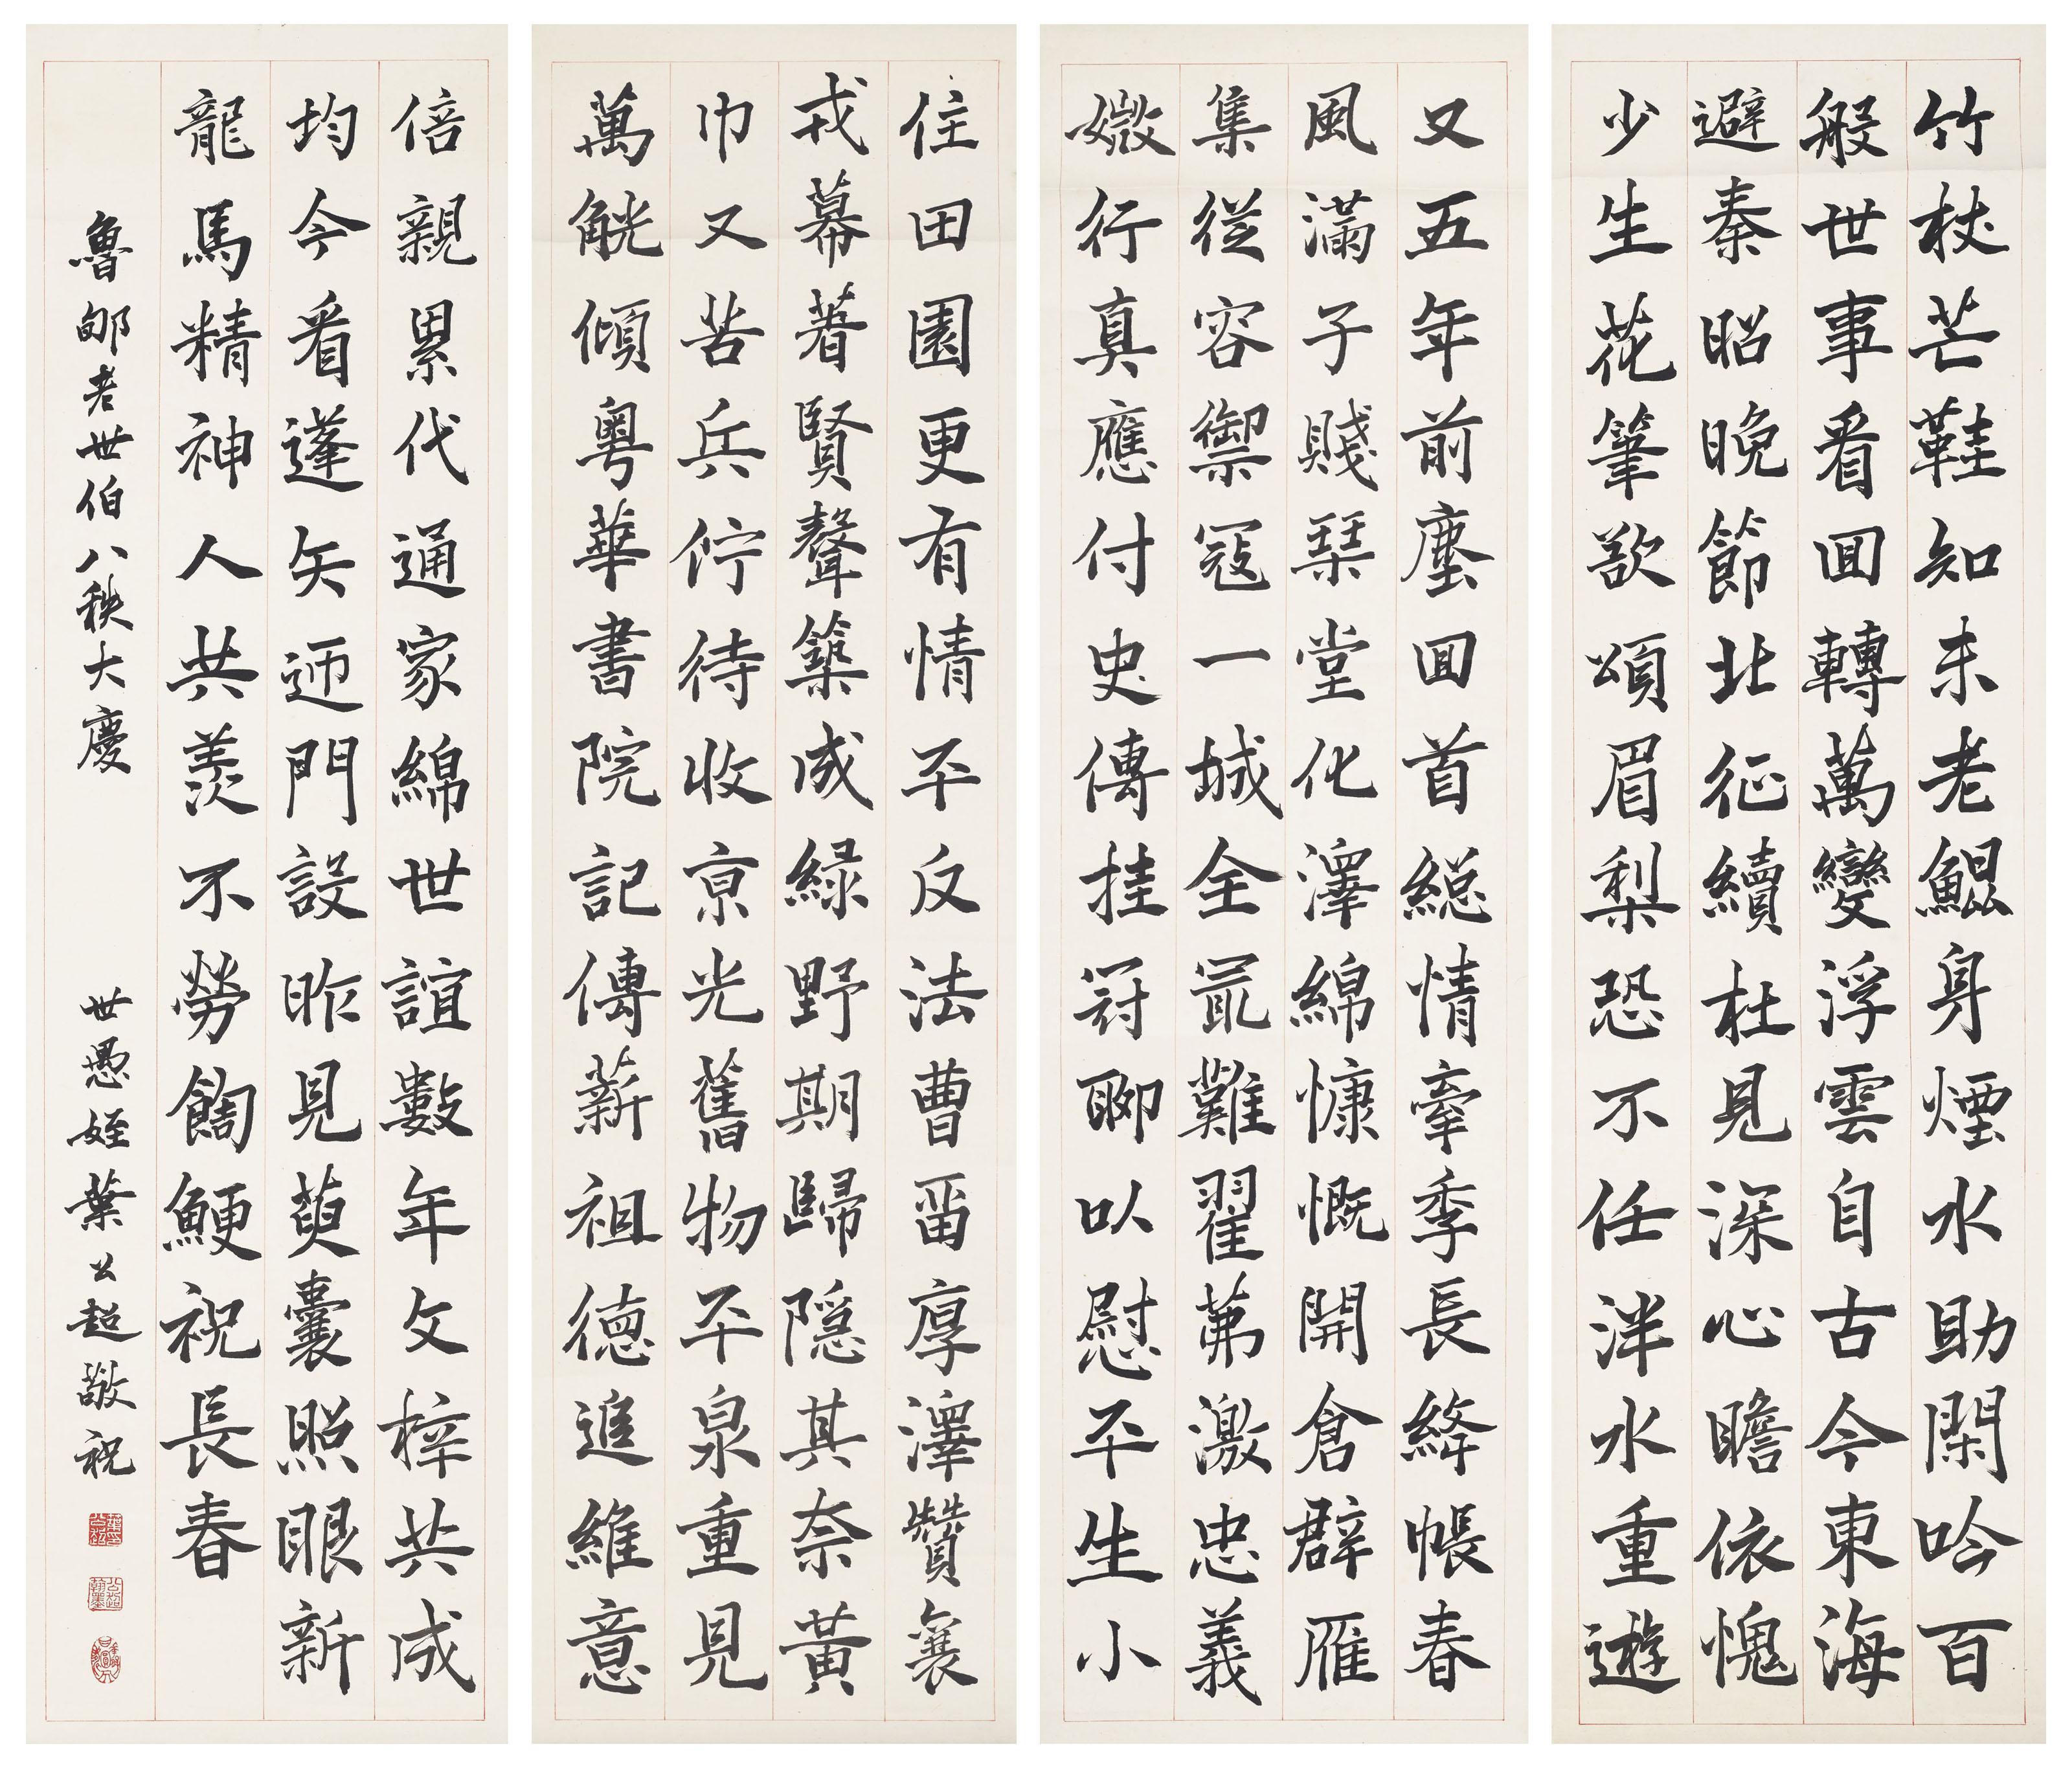 竹杖芒鞋知未老鯤身煙水助閑吟百
般世事看回轉萬變浮雲自古今東海
避秦昭晚節北征續杜見深心瞻依愧
少生花筆欲頌眉梨恐不任泮水重遊
又五年前塵回首總情牽季長絳帳春
風滿子賤琹堂化澤綿慷慨開倉群雁
集從容禦寇一城全最難翟茀激忠義
媺行真應付史傳挂冠聊以慰平生小
住田園更有情平反法曹畱厚澤贊襄
戎幕著賢聲築成綠野期歸隱其奈黃
巾又苦兵佇待收京光舊物平泉重見
萬觥傾粵華書院記傳薪祖德追維意
倍親累代通家綿世誼數年文梓共成
均今看蓬矢迊門設昨見萸囊照眼新
龍馬精神人共羨不勞鯁祝長春
魯郇老世伯八秩大慶
世愚姪葉公超敬祝